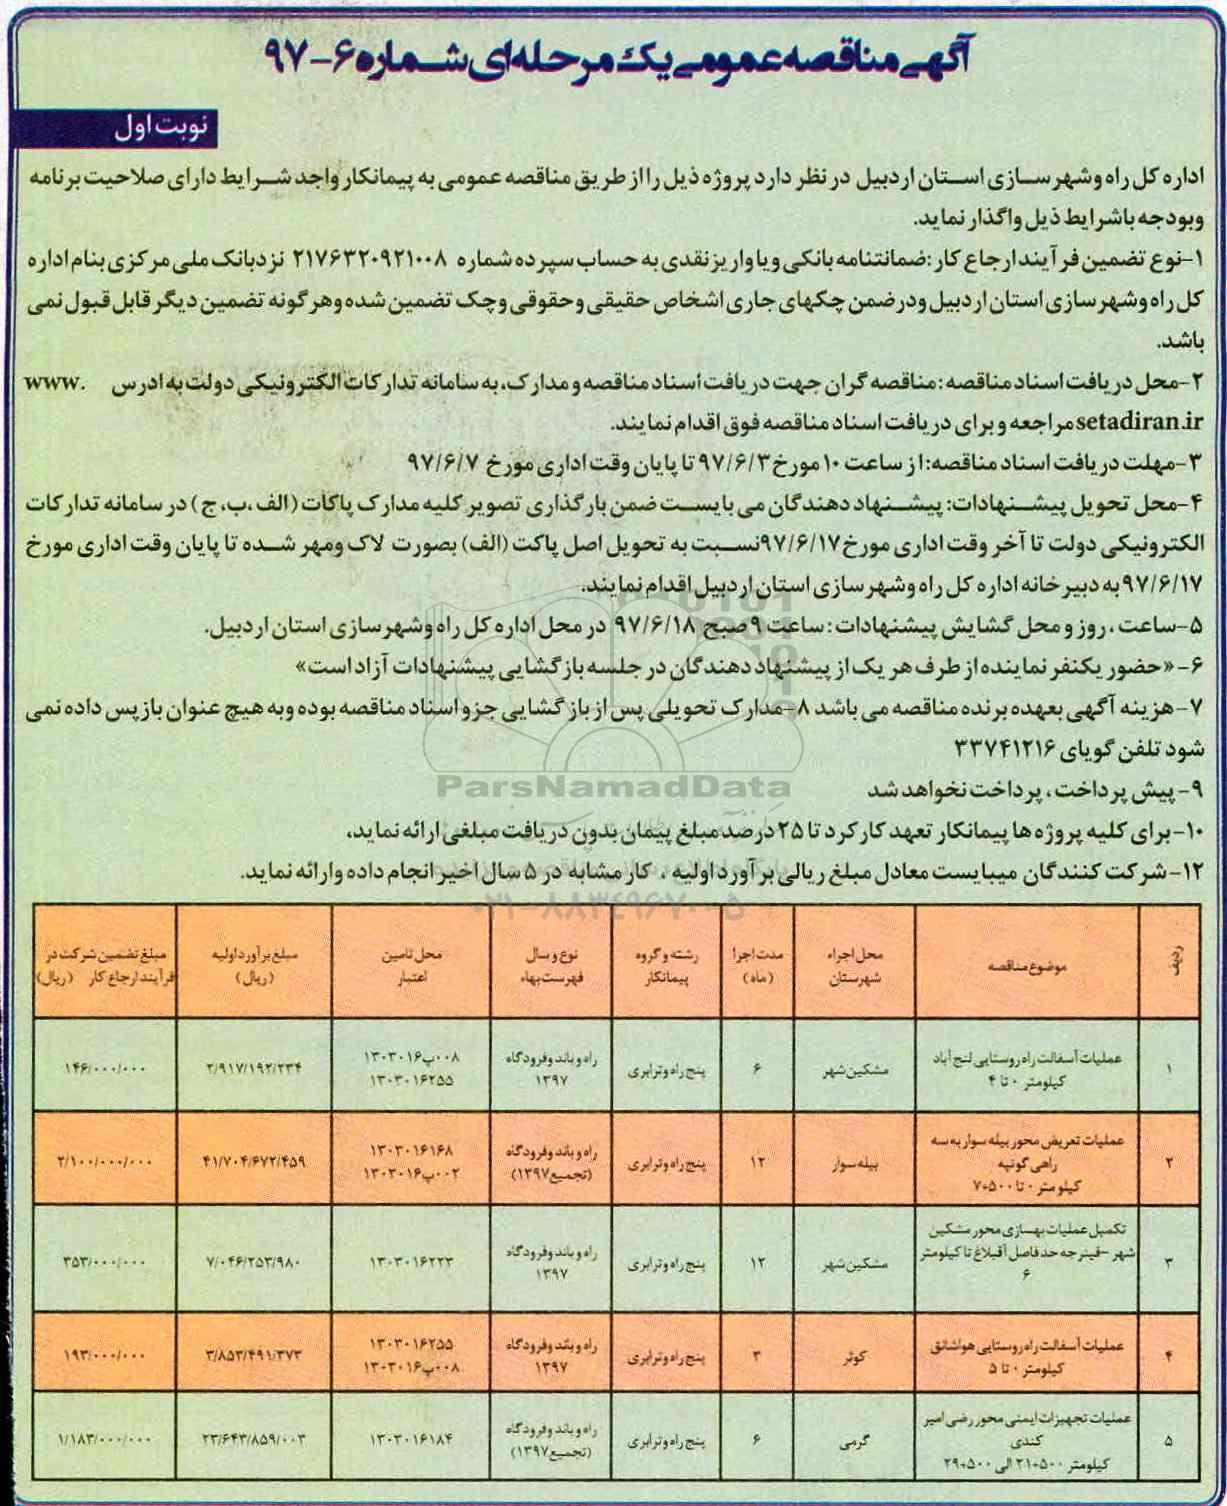 آگهی مناقصه عمومی یک مرحله‌ای شماره ۶-۹۷
نوبت اول
اداره کل راه وشهرسازی استان اردبیل در نظر دارد پروژه ذیل را از طریق مناقصه عمومی به پیمانکار واجد شرایط دارای صلاحیت برنامه
وبودجه باشرایط ذیل واگذار نماید.
۱-نوع تضمین فرآیند ارجاع کار :ضمانتنامه بانکی ویا واریز نقدی به حساب سپرده شماره ۲۱۷۶۳۲۰۹۲۱۰۰۸ نزد بانک ملی مرکزی بنام اداره
کل راه وشهرسازی استان اردبیل ودرضمن چکهای جاری اشخاص حقیقی وحقوقی وچک تضمین شده وهرگونه تضمین دیگر قابل قبول نمی
باشد.
۲-محل دریافت اسناد مناقصه :مناقصه گران جهت دریافت اسناد مناقصه و مدارک، به سامانه تدارکات الکترونیکی دولت به ادرس www.
setadiran.ir مراجعه و برای دریافت اسناد مناقصه فوق اقدام نمایند.
۳-مهلت دریافت اسناد مناقصه: از ساعت ۱۰ مورخ ۹۷/۶/۳ تا پایان وقت اداری مورخ ۹۷/۶/۷
۴-محل تحویل پیشنهادات: پیشنهاد دهندگان می بایست ضمن بارگذاری تصویر کلیه مدارک پاکات (الف ،ب، ج) در سامانه تدارکات
الکترونیکی دولت تا آخر وقت اداری مورخ ۹۷/۶/۱۷ نسبت به تحویل اصل پاکت (الف) بصورت لاک ومهر شده تا پایان وقت اداری مورخ
۹۷/۶/۱۷ به دبیرخانه اداره کل راه وشهرسازی استان اردبیل اقدام نمایند.
۵-ساعت ، روز و محل گشایش پیشنهادات : ساعت ۹ صبح ۹۷/۶/۱۸ در محل اداره کل راه وشهرسازی استان اردبیل.
۶-«حضور یکنفر نماینده از طرف هر یک از پیشنهاد دهندگان در جلسه بازگشایی پیشنهادات آزاد است»
۷-هزینه آگهی بعهده برنده مناقصه می باشد ۸-مدارک تحویلی پس از باز گشایی جزو اسناد مناقصه بوده وبه هیچ عنوان بازپس داده نمی
شود تلفن گویای ۳۳۷۴۱۲۱۶
ParsNamadData
۹- پیش پرداخت ، پرداخت نخواهد شد
۱۰-برای کلیه پروژه ها پیمانکار تعهد کارکرد تا ۲۵ درصد مبلغ پیمان بدون دریافت مبلغی ارائه نماید،
۱۲-شرکت کنندگان میبایست معادل مبلغ ریالی برآورد اولیه ، کار مشابه در ۵ سال اخیر انجام داده وارائه نماید.
۰۲۱-۸۸۳۴۹۶۷۰-۵
ردیف موضوع مناقصه محل اجراء شهرستان مدت اجرا (ماه) رشته و گروه پیمانکار نوع و سال فهرست بهاء محل تامین اعتبار مبلغ برآورد اولیه (ریال) مبلغ تضمین شرکت در فرآیند ارجاع کار (ریال)
۱ عملیات آسفالت راه روستایی لنج آباد کیلومتر ۰ تا ۴ مشکین شهر ۶ پنج راه و ترابری راه و باند وفرودگاه ۱۳۹۷ ۰۰۸پ۱۳۰۳۰۱۶ ۱۳۰۳۰۱۶۲۵۵ ۲/۹۱۷/۱۹۲/۲۳۴ ۱۴۶/۰۰۰/۰۰۰
۲ عملیات تعریض محور بیله سوار به سه راهی گونپه کیلو متر ۰ تا ۵۰۰+۷ بیله سوار ۱۲ پنج راه و ترابری راه و باند وفرودگاه (تجمیع ۱۳۹۷) ۱۳۰۳۰۱۶۱۶۸ ۰۰۲پ۱۳۰۳۰۱۶ ۴۱/۷۰۴/۶۷۲/۴۵۹ ۲/۱۰۰/۰۰۰/۰۰۰
۳ تکمیل عملیات بهسازی محور مشکین شهر -قینرجه حد فاصل آقبلاغ تا کیلومتر ۶ مشکین شهر ۱۲ پنج راه و ترابری راه و باند وفرودگاه ۱۳۹۷ ۱۳۰۳۰۱۶۲۲۳ ۷/۰۴۶/۲۵۳/۹۸۰ ۳۵۳/۰۰۰/۰۰۰
۴ عملیات آسفالت راه روستایی هواشانق کیلومتر ۰ تا ۵ کوثر ۳ پنج راه و ترابری راه و باند وفرودگاه ۱۳۹۷ ۱۳۰۳۰۱۶۲۵۵ ۰۰۸پ۱۳۰۳۰۱۶ ۳/۸۵۳/۴۹۱/۳۷۳ ۱۹۳/۰۰۰/۰۰۰
۵ عملیات تجهیزات ایمنی محور رضی امیر کندی کیلومتر ۵۰۰+۲۱ الی ۵۰۰+۲۹ گرمی ۶ پنج راه و ترابری راه و باند وفرودگاه (تجمیع ۱۳۹۷) ۱۳۰۳۰۱۶۱۸۴ ۲۳/۶۴۳/۸۵۹/۰۰۳ ۱/۱۸۳/۰۰۰/۰۰۰